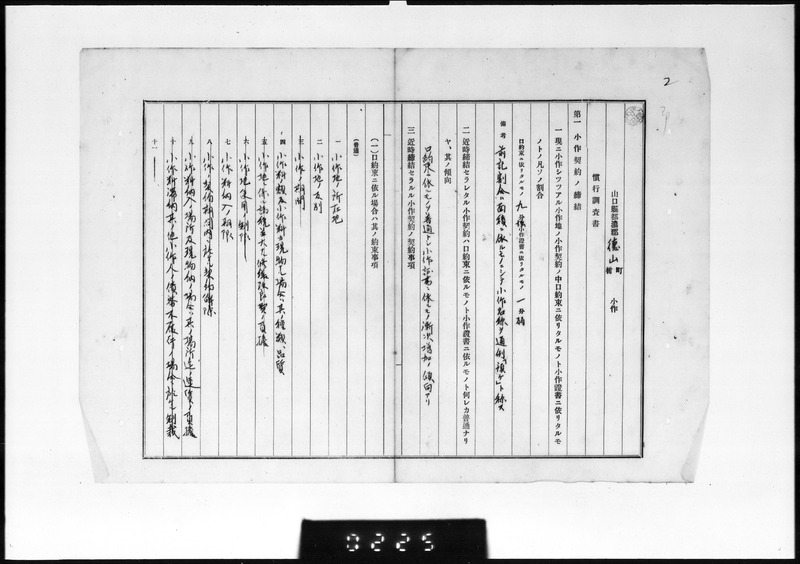 2
山口縣都濃郡 徳山 町村 小作
慣行調査書
第一 小作契約ノ締結
一 現ニ小作シツツアル小作地ノ小作契約ノ中口約束ニ依リタルモノト小作證書ニ依リタルモ
ノトノ凡ソノ割合
口約束ニ依リタルモノ 九分 小作證書ニ依リタルモノ 一分
備考 前記割合ハ面積ニ依ルモノニシテ小作
二 近時締結セラレタル小作契約ハ口約束ニ依ルモノト小作證書ニ依ルモノト何レカ普通ナリ
ヤ、其ノ傾向
口約束ニ依ルモノヲ普通トシ小作証書ニ依ルモノ漸次増加ノ傾向アリ
三 近時締結セラルル小作契約ノ契約事項
(一)口約束ニ依ル場合ハ其ノ約束事項
(普通)
一 小作地ノ所在地
二 小作地ノ反別
三 小作期間
四 小作料額及小作料ガ現物ナル場合ハ其ノ種類、品質
五 小作地ニ係ル修繕改良費ノ負擔
六 小作地使用ノ制限
七 小作料納入ノ期限
八 小作ノ契約期間内ニ於ケル契約解除
九 小作料納入ノ場所及現物納ノ場合ハ其ノ場所迄ノ運賃ノ負擔
十 小作料滞納其ノ他小作人ノ債務不履行ノ場合ニ於ケル制裁
十一
0225